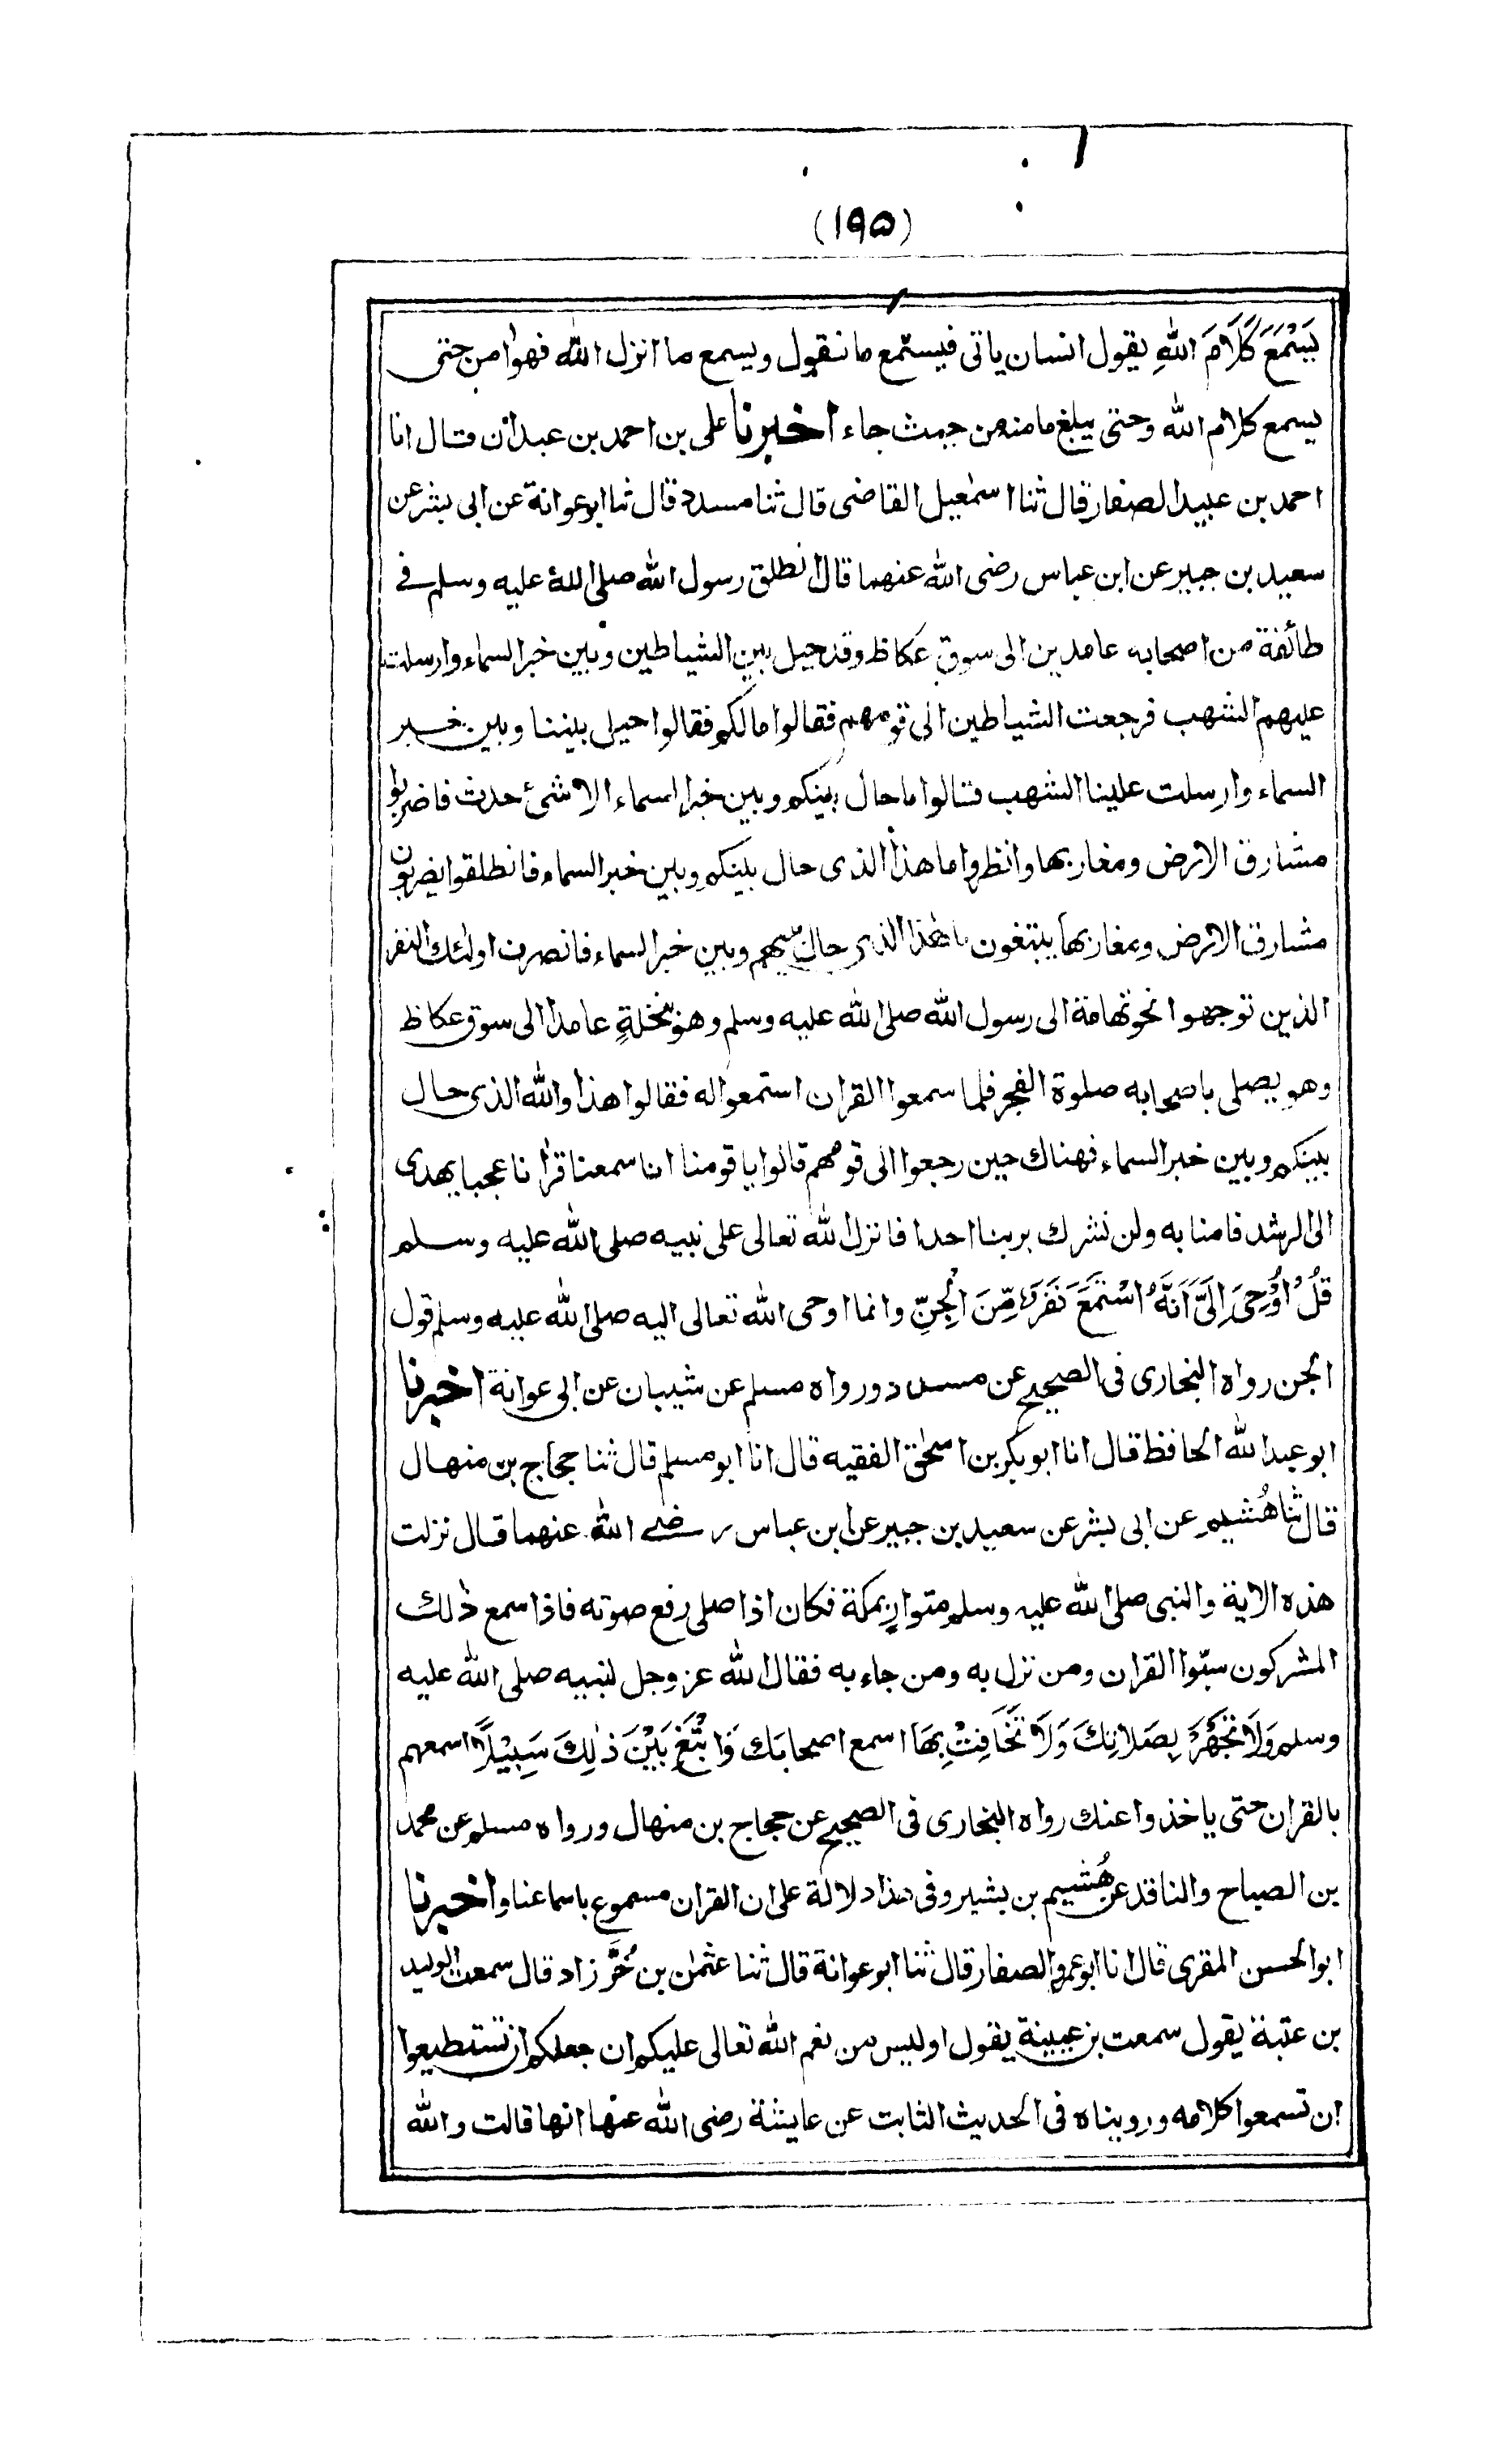 (١٩٥)
يَسْمَعَ كَلَامَ اللهِ يقول انسان ياتى فيستمع ما نقول ويسمع ما انزل الله فهوا من حتى
يسمع كلام الله وحتى يبلغ مامنه من حيث جاء اخبرنا على بن احمد بن عبدان قال انا
احمد بن عبيد الصفار قال ثنا اسمٰعيل القاضى قال ثنا مسدد قال ثنا ابوعوانة عن ابى بشر عن
سعيد بن جبير عن ابن عباس رضى الله عنهما قال انطلق رسول الله صلى الله عليه وسلم فى
طائفة من اصحابه عامدين الى سوق عكاظ وقد حيل بين الشياطين وبين خبر السماء وارسلت
عليهم الشهب فرجعت الشياطين الى قومهم فقالوا مالكم فقالوا حيل بيننا وبين خبر
السماء وارسلت علينا الشهب فقالوا ما حال بينكم وبين خبر السماء الا شئ حدث فاضربوا
مشارق الارض ومغاربها وانظروا ما هذا الذى حال بينكم وبين خبر السماء فانطلقوا يضربون
مشارق الارض ومغاربها يبتغون ما هٰذا الذى حال بينهم وبين خبر السماء فانصرف اولئك النفر
الذين توجهوا نحو تهامة الى رسول الله صلى الله عليه وسلم وهو بنخلةٍ عامدا الى سوق عكاظ
وهو يصلى باصحابه صلوة الفجر فلما سمعوا القران استمعوا له فقالوا هذا والله الذى حال
بينكم وبين خبر السماء فهناك حين رجعوا الى قومهم قالوا يا قومنا انا سمعنا قرانا عجبا يهدى
الى الرشد فامنا به ولن نشرك بربنا احدا فانزل الله تعالى على نبيه صلى الله عليه وسلم
قُلْ اُوْحِىَ اِلَىَّ اَنَّهُ اسْتَمَعَ نَفَرٌ مِّنَ الْجِنِّ وانما اوحى الله تعالى اليه صلى الله عليه وسلم قول
الجن رواه البخارى فى الصحيح عن مسدد ورواه مسلم عن شيبان عن ابى عوانة اخبرنا
ابو عبد الله الحافظ قال انا ابوبكر بن اسحٰق الفقيه قال انا ابو مسلم قال ثنا حجاج بن منهال
قال ثنا هُشيم عن ابى بشر عن سعيد بن جبير عن ابن عباس رضى الله عنهما قال نزلت
هذه الاية والنبى صلى الله عليه وسلم متوارٍ بمكة فكان اذا صلى رفع صوته فاذا سمع ذلك
المشركون سبّوا القران ومن نزل به ومن جاء به فقال الله عز وجل لنبيه صلى الله عليه
وسلم وَلَا تَجْهَرْ بِصَلَاتِكَ وَلَا تُخَافِتْ بِهَا اسمع اصحابك وَابْتَغِ بَيْنَ ذٰلِكَ سَبِيْلًا اسمعهم
بالقران حتى ياخذوا عنك رواه البخارى فى الصحيح عن حجاج بن منهال ورواه مسلم عن محمد
بن الصباح والناقد عن هُشيم بن بشير وفى هذا دلالة على ان القران مسموع باسماعنا واخبرنا
ابو الحسن المقرى قال انا ابو عمرو الصفار قال ثنا ابو عوانة قال ثنا عثمٰن بن خُرَّزاد قال سمعت الوليد
بن عتبة يقول سمعت بن عيينة يقول اوليس من نعم الله تعالى عليكم ان جعلكم ان تستطيعوا
ان تسمعوا كلامه وروينا ه فى الحديث الثابت عن عايشة رضى الله عنها انها قالت والله